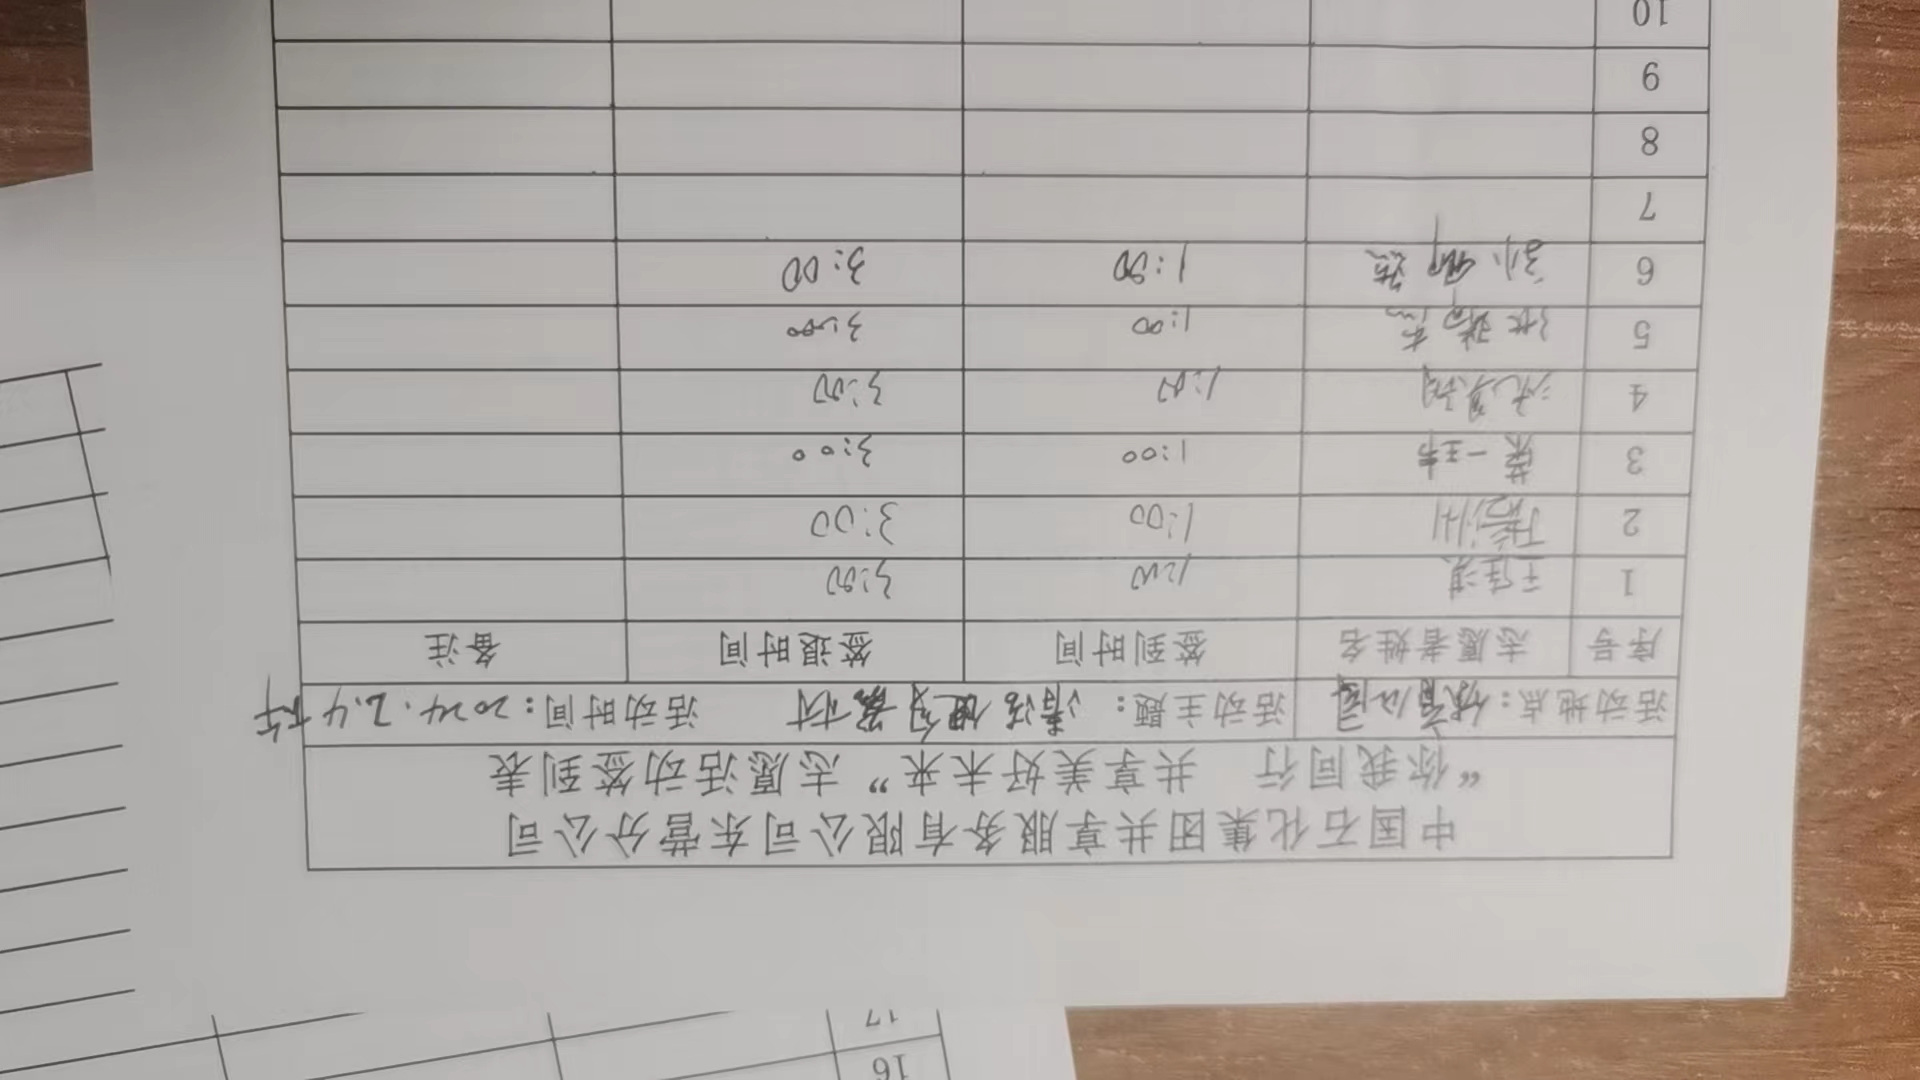 中国石化集团共享服务有限公司东营分公司
“你我同行 共享美好未来”志愿活动签到表
活动地点：体育公园 活动主题：清洁健身器材 活动时间：2024.2.4下午
序号 志愿者姓名 签到时间 签退时间 备注
1 王佳淇 1:00 3:00
2 1:00 3:00
3 1:00 3:00
4 1:00 3:00
5 1:00 3:00
6 1:00 3:00
7
8
9
10
16
17